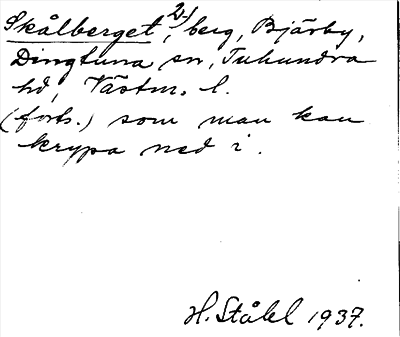 Skålberget 2/, berg, Bjärby,
Dingtuna sn, Tuhundra
hd, Västm. l.
(forts.) som man kan
krypa ned i.
H. Ståhl 1937.